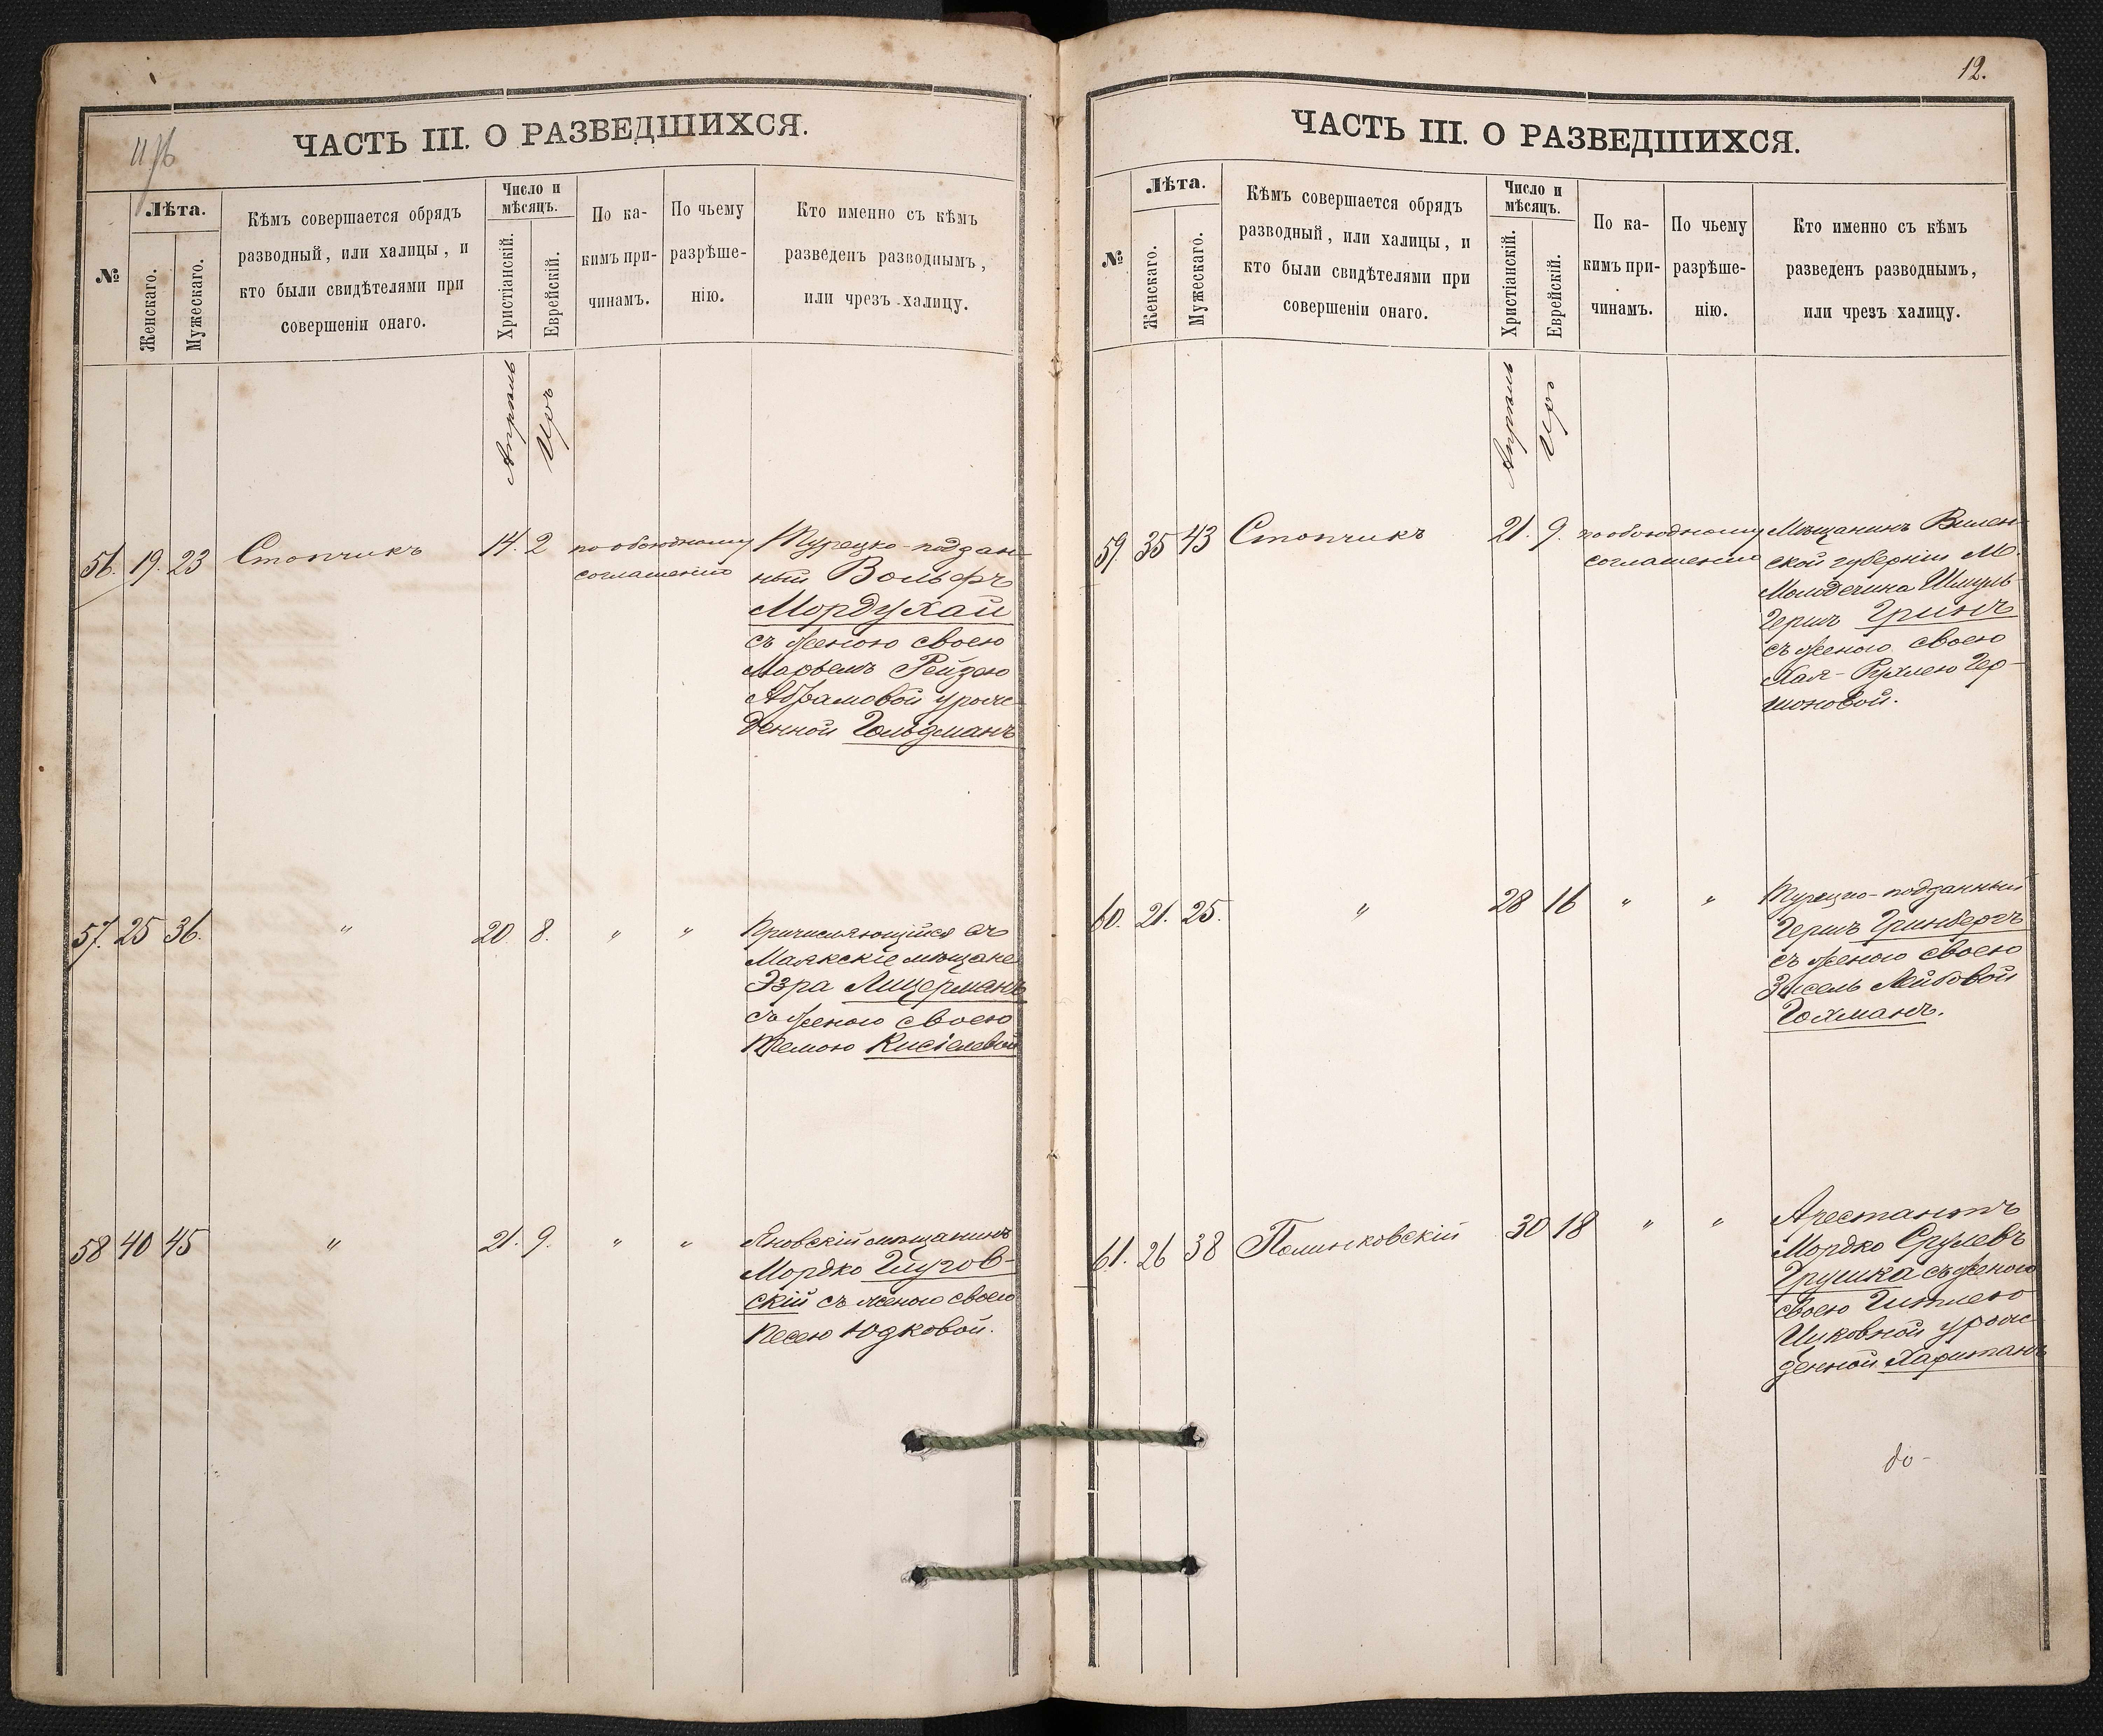 ЧАСТЬ III. О РАЗВЕДШИХСЯ.
№
Лѣта.
Женскаго.
Мужескаго.
Кѣмъ совершается обрядъ
разводный, или халицы, и
кто были свидѣтелями при
совершеніи онаго.
Число и
мѣсяцъ.
Христіанскій.
Еврейскій.
По ка-
кимъ при-
чинамъ.
По чьему
разрѣше-
нію.
Кто именно съ кѣмъ
разведенъ разводнымъ,
или чрезъ халицу.
Апрель
Иръ
56. 19. 23 Стопчикъ 14. 2 по обоюдному
соглашенію
Турецко-поддан-
ный Вольфъ
Мордухай
съ женою своею
Марьемъ Рейзею
Абрамовой урож-
денной Гольдманъ
57. 25 36. " 20. 8. " "
Причисляющійся въ
Маякскіе мѣщане
Эзра Лицерманъ
съ женою своею
Темою Кисіелевой
58 40 45 " 21. 9. " "
Яновскій мѣщанинъ
Мордко Глузов-
скій съ женою своею
Песею Юдковой.
12.
ЧАСТЬ III. О РАЗВЕДШИХСЯ.
№
Лѣта.
Женскаго.
Мужескаго.
Кѣмъ совершается обрядъ
разводный, или халицы, и
кто были свидѣтелями при
совершеніи онаго.
Число и
мѣсяцъ.
Христіанскій.
Еврейскій.
По ка-
кимъ при-
чинамъ.
По чьему
разрѣше-
нію.
Кто именно съ кѣмъ
разведенъ разводнымъ,
или чрезъ халицу.
Апрель
Иръ
59. 35 43 Стопчикъ 21. 9. по обоюдному
соглашенію
Мѣщанинъ Вилен-
ской губерніи М.
Молодечина Шмуль-
Гершъ Гринъ
съ женою своею
Хая-Рухлею Гер-
шоновой.
60. 21. 25. " 28 16 " "
Турецко-подданный
Гершъ Гринбергъ
съ женою своею
Зисель Лейбовой
Гохманъ.
61. 26 38 Полинковскій 30 18 " "
Арестантъ
Мордко Срулевъ
Грушка съ женою
своею Гитлею
Ицковной урож-
денной Хаританъ